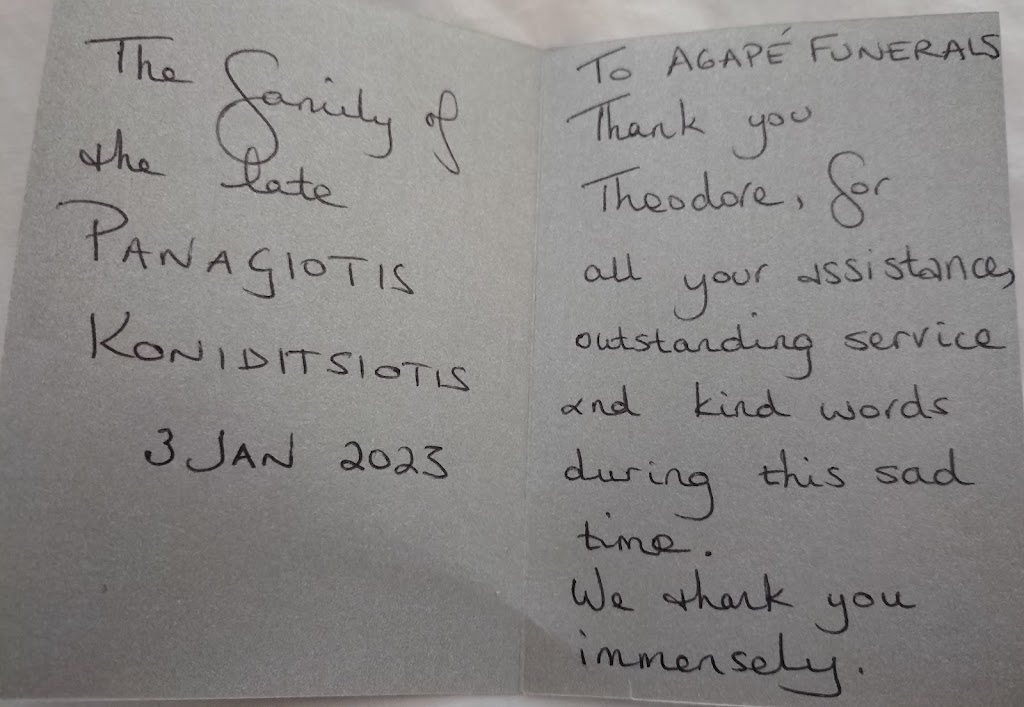 The Family of
the late
PANAGIOTIS
KONIDITSIOTIS
3 JAN 2023
To AGAPÉ FUNERALS
Thank you
Theodore, for
all your assistance,
outstanding service
and kind words
during this sad
time.
We thank you
immensely.